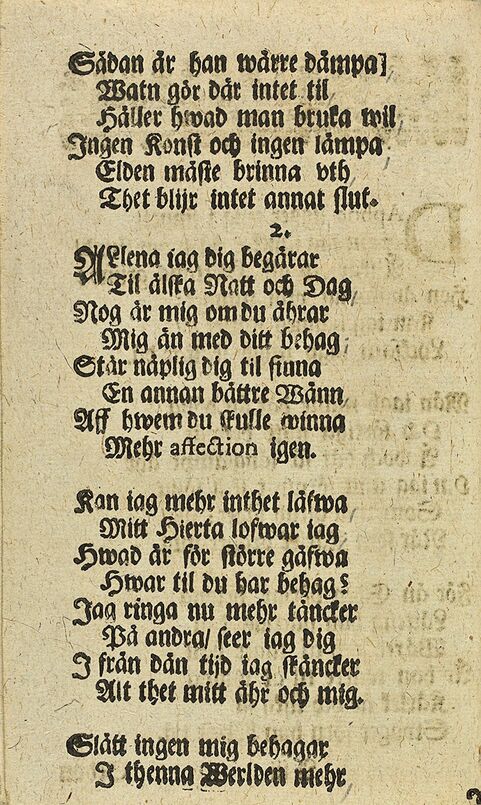 Sådan är han wärre dämpa/
Watn gör där intet til
Håller hwad man bruka wil/
Ingen Konst och ingen lämpa
Elden måste brinna vth
Thet blijr intet annat slut.
2.
ALlena iag dig begärar
Til älska Natt och Dag
Nog är mig om du ährar
Mig än med ditt behag/
Står näplig dig til finna
En annan bättre Wänn
Aff hwem du skulle winna
Mehr affection igen.
Kan iag mehr inthet låfwa
Mitt Hierta lofwar iag
Hwad är för större gåfwa
Hwar til du har behag?
Jag ringa nu mehr täncker
På andra/ seer iag dig
I från dän tijd iag skäncker
Alt thet mitt ähr och mig.
Slätt ingen mig behagar
I thenna Werlden mehr